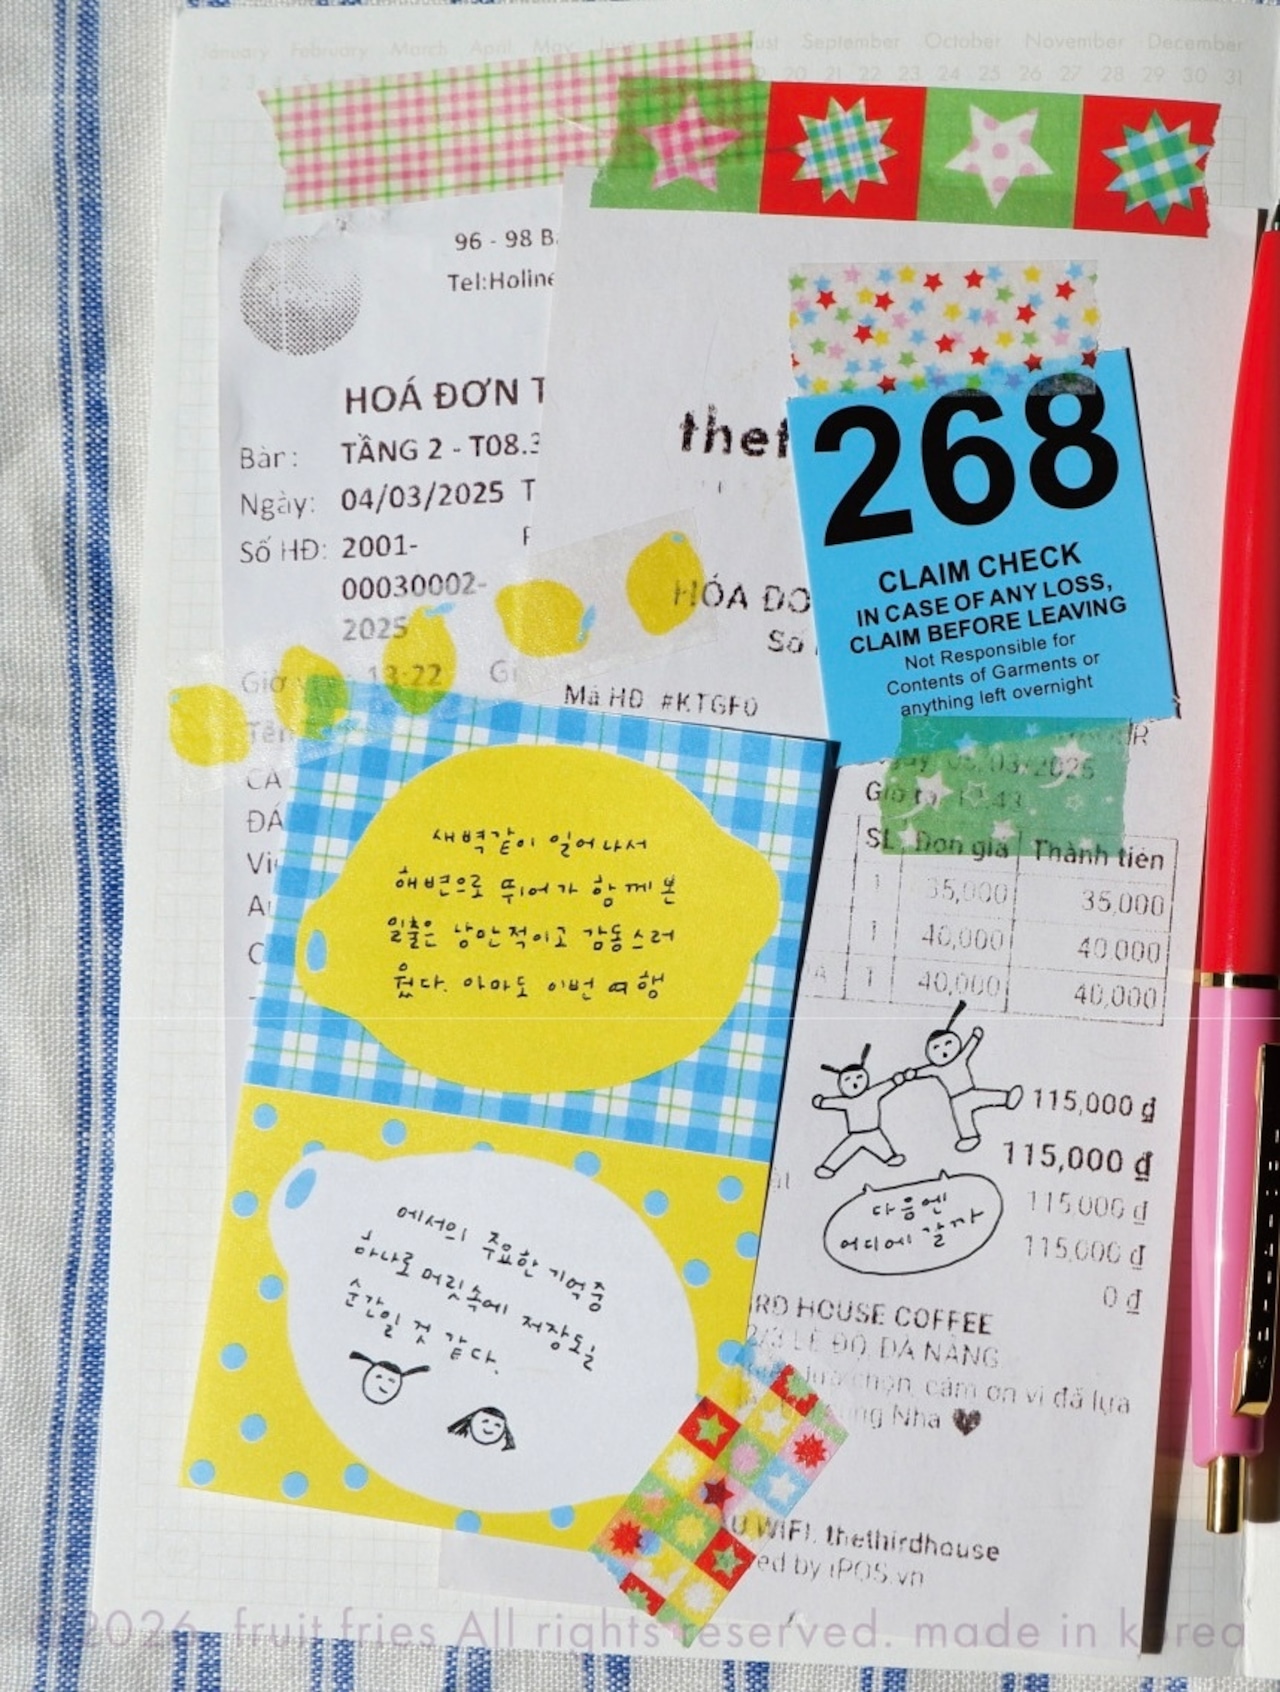 January February March April May June August September October November December
20 21 22 23 24 25 26 27 28 29 30 31
96 - 98
Tel:Holine
HOÁ ĐƠN
Bàn: TẦNG 2 - T08.3
Ngày: 04/03/2025
Số HĐ: 2001-
00030002-
2025
Giờ 13:22
thet
HÓA ĐƠ
Số
Mã HĐ #KTGF0
268
CLAIM CHECK
IN CASE OF ANY LOSS,
CLAIM BEFORE LEAVING
Not Responsible for
Contents of Garments or
anything left overnight
/03/2025
SL Đơn giá Thành tiền
1 35,000 35,000
1 40,000 40,000
1 40,000 40,000
115,000 ₫
115,000 ₫
115,000 ₫
115,000 ₫
0 ₫
새벽같이 일어나서
해변으로 뛰어가 함께 본
일출은 낭만적이고 감동스러
웠다. 아마도 이번 여행
에서의 주요한 기억중
하나로 머릿속에 저장될
순간일 것 같다.
다음엔
어디에 갈까
RD HOUSE COFFEE
2/3 LÊ ĐỘ, ĐÀ NẴNG
lựa chọn, cảm ơn vì đã lựa
Nha
WIFI: thethirdhouse
ed by iPOS.vn
©2026. fruit fries All rights reserved. made in korea